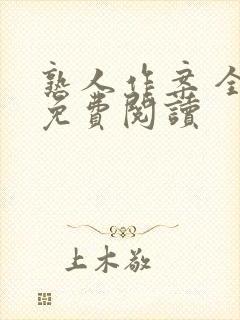 熟人作案全
免費閱讀
上木敬